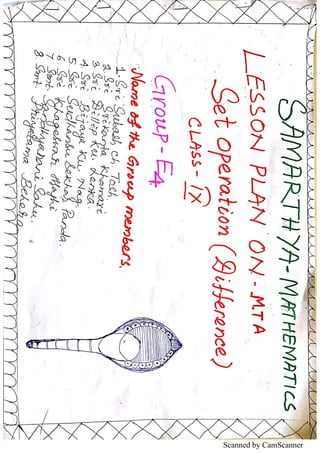 SAMARTHYA-MATHEMATICS
LESSON PLAN ON-MTA
Set operation (Difference)
CLASS- IX
Group-E4
Name of the Group members.
1. Sri Subash ch. Tad
2 Sri Srikanta Khamari
3 Sri Dillip Ku Karna
4 Sri Bijaya Ku. Nag
5. Sri Sudhansu sekhar Panda
6 Sri Khageswar Majhi
7 Smt. Sandhyarani Sahu.
8 Smt Priyatama Behera
Scanned by CamScanner